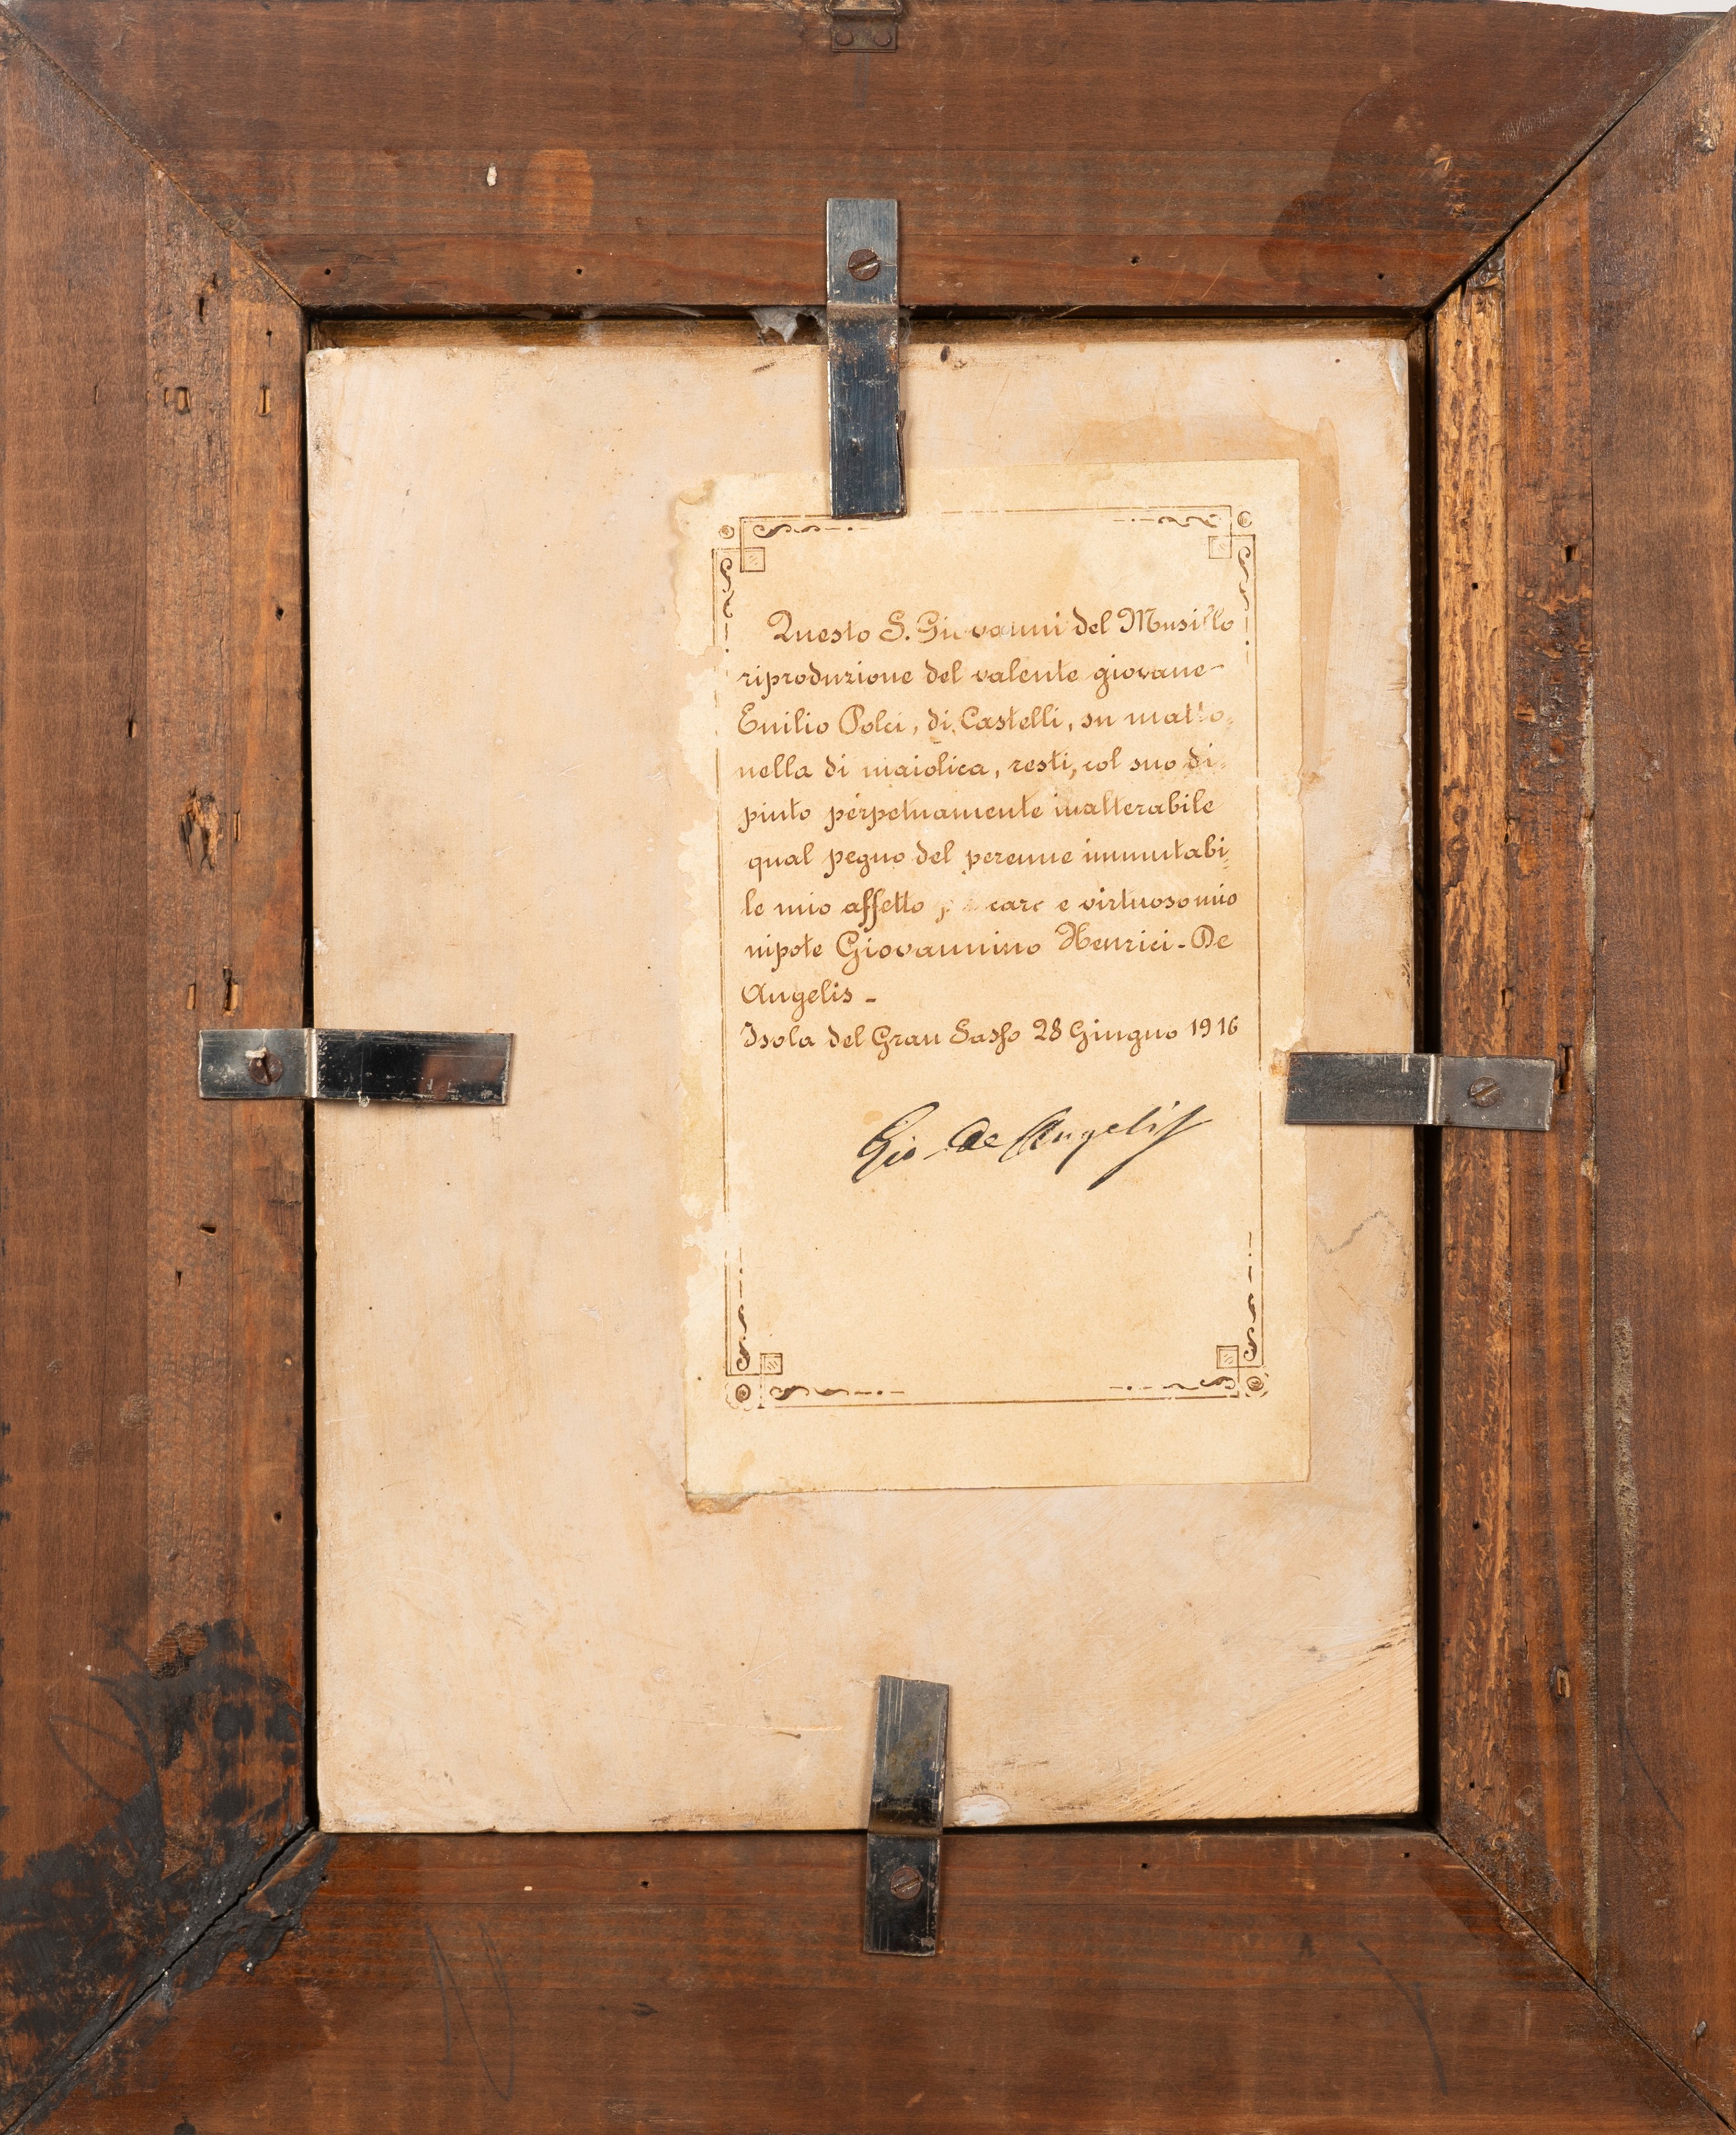 Questo S. Giovanni del Musillo
riproduzione del valente giovane
Emilio Polci, di Castelli, su matto=
nella di maiolica, resti, col suo di=
pinto perpetuamente inalterabile
qual pegno del perenne immutabi=
le mio affetto caro e virtuoso mio
nipote Giovannino Henrici - De
Angelis -
Isola del Gran Sasso 28 Giugno 1916
Gio De Angelis